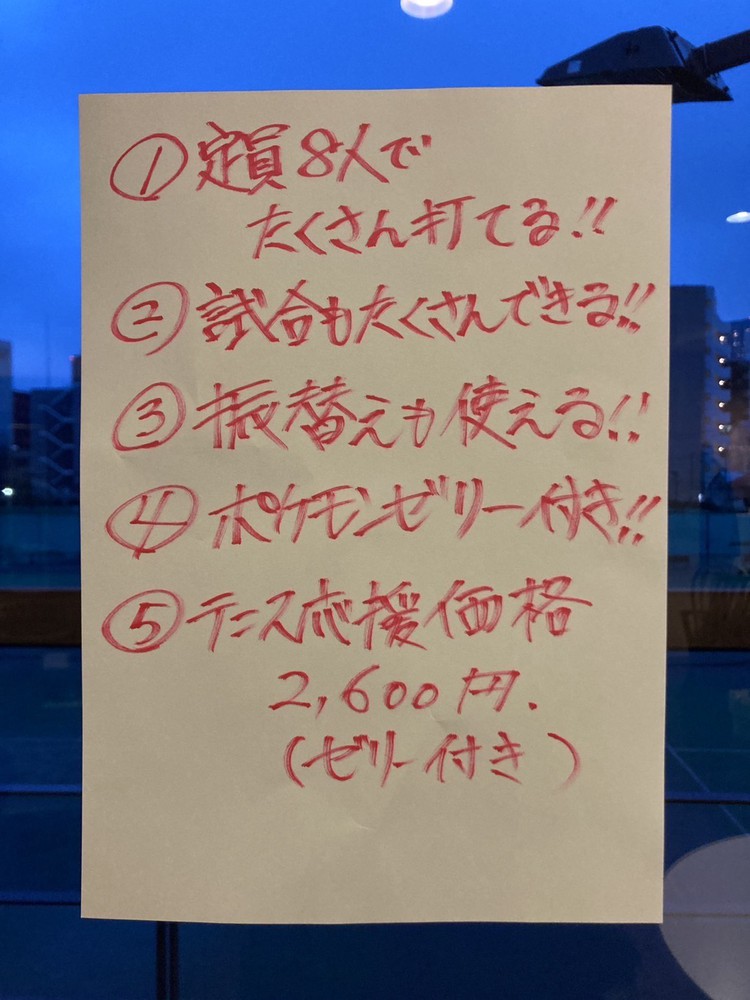 ① 定員8人で
たくさん打てる!!
② 試合もたくさんできる!!
③ 振替えも使える!!
④ ポケモンゼリー付き!!
⑤ テニス応援価格
2,600円.
(ゼリー付き)